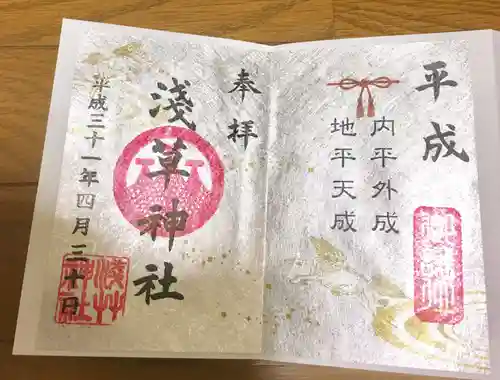 平成
内平外成
地平天成
奉拝
浅草神社
平成三十一年四月三十日